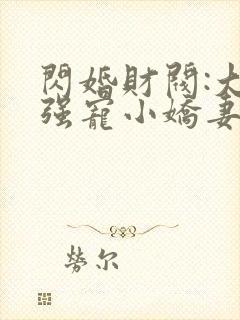 閃婚財閥:大
强寵小嬌妻
勞尔